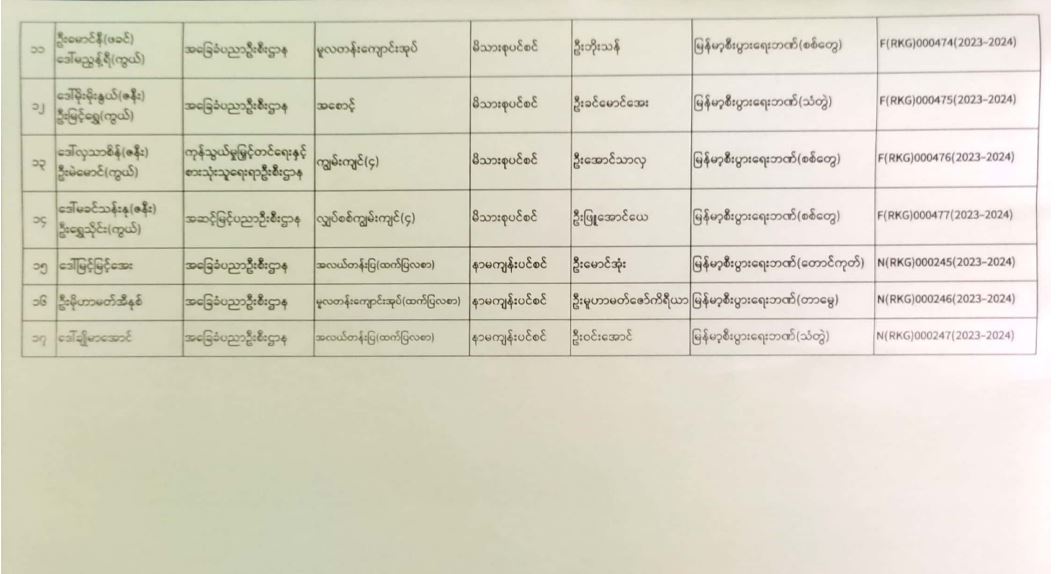 ၁၁ ဦးမောင်နီ(ဖခင်) ဒေါ်မညွန့်ရီ(ကွယ်) အခြေခံပညာဦးစီးဌာန မူလတန်းကျောင်းအုပ် မိသားစုပင်စင် ဦးဘိုးသန် မြန်မာ့စီးပွားရေးဘဏ်(စစ်တွေ) F(RKG)000474(2023-2024)
၁၂ ဒေါ်မိုးမိုးနွယ်(ဇနီး) ဦးမြင့်ရွှေ(ကွယ်) အခြေခံပညာဦးစီးဌာန အစောင့် မိသားစုပင်စင် ဦးခင်မောင်အေး မြန်မာ့စီးပွားရေးဘဏ်(သံတွဲ) F(RKG)000475(2023-2024)
၁၃ ဒေါ်လှသာစိန်(ဇနီး) ဦးမဲမောင်(ကွယ်) ကုန်သွယ်မှုမြှင့်တင်ရေးနှင့် စားသုံးသူရေးရာဦးစီးဌာန ကျွမ်းကျင်(၄) မိသားစုပင်စင် ဦးအောင်သာလှ မြန်မာ့စီးပွားရေးဘဏ်(စစ်တွေ) F(RKG)000476(2023-2024)
၁၄ ဒေါ်မခင်သန်းနု(ဇနီး) ဦးရွှေသိုင်း(ကွယ်) အဆင့်မြင့်ပညာဦးစီးဌာန လျှပ်စစ်ကျွမ်းကျင်(၄) မိသားစုပင်စင် ဦးဖြူအောင်ယေ မြန်မာ့စီးပွားရေးဘဏ်(စစ်တွေ) F(RKG)000477(2023-2024)
၁၅ ဒေါ်မြင့်မြင့်အေး အခြေခံပညာဦးစီးဌာန အလယ်တန်းပြ(ထက်ပြလစာ) နာမကျန်းပင်စင် ဦးမောင်အုံး မြန်မာ့စီးပွားရေးဘဏ်(တောင်ကုတ်) N(RKG)000245(2023-2024)
၁၆ ဦးမိုဟာမတ်အီနုစ် အခြေခံပညာဦးစီးဌာန မူလတန်းကျောင်းအုပ်(ထက်ပြလစာ) နာမကျန်းပင်စင် ဦးမူဟာမတ်ဇော်ကိရီယာ မြန်မာ့စီးပွားရေးဘဏ်(တာမွေ) N(RKG)000246(2023-2024)
၁၇ ဒေါ်ချိုမာအောင် အခြေခံပညာဦးစီးဌာန အလယ်တန်းပြ(ထက်ပြလစာ) နာမကျန်းပင်စင် ဦးဝင်းအောင် မြန်မာ့စီးပွားရေးဘဏ်(သံတွဲ) N(RKG)000247(2023-2024)